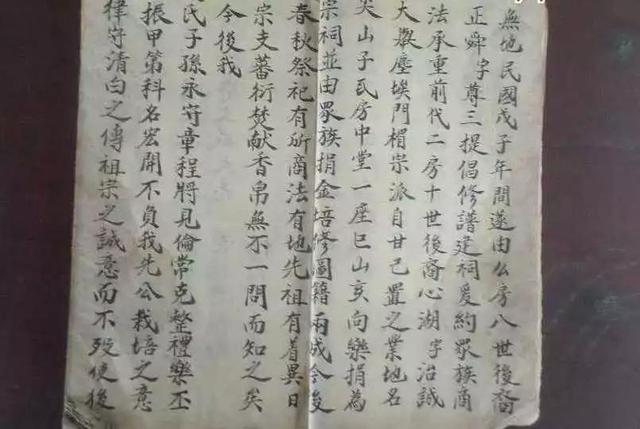 無地民國戊子年間遂由么房八世後裔
正舜字尊三提倡修譜建祠爰約眾族商
法承重前代二房十世後裔心湖字治誠
大 壓埃門楣宗派自甘己置之業地名
尖山子瓦房中堂一座巳山亥向樂捐為
宗祠並由眾族捐金培修圖籍兩成令後
春秋祭祀有所商法有地先祖有着異日
宗支蕃衍焚献香帛無不一問而知之矣
今後我
氏子孫永守章程將見倫常克整禮樂丕
振甲第科名宏開不負我先公栽培之意
律守清白之傳祖宗之誠意而不歿使後